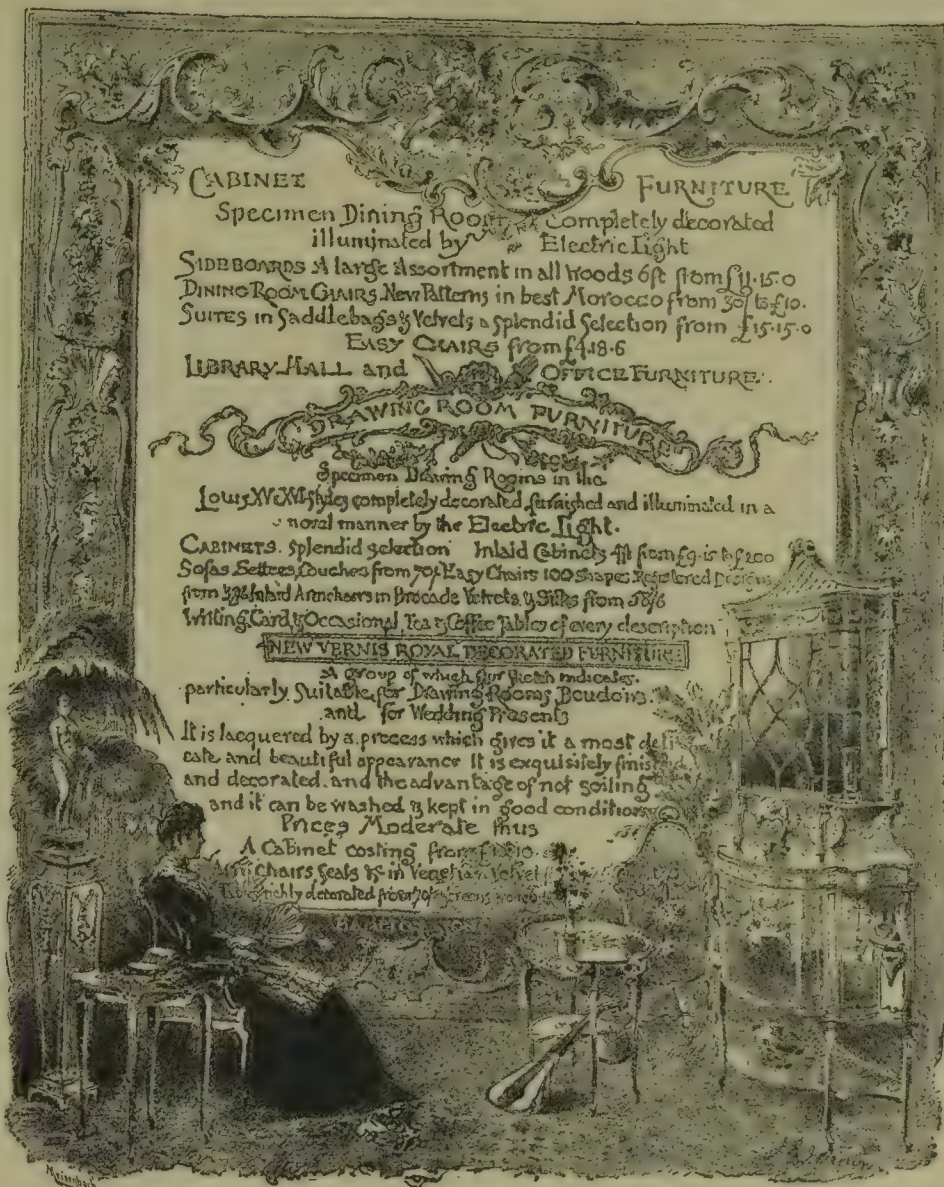 CABINET FURNITURE
Specimen Dining Room Completely decorated
illuminated by Electric Light
SIDEBOARDS A large Assortment in all Woods 6ft from
DINING ROOM CHAIRS. New Patterns in best Morocco from 30/ to £10.
SUITES in Saddlebags & Velvets a Splendid Selection from £15.15.0
EASY CHAIRS from £4.18.6
LIBRARY HALL and OFFICE FURNITURE.
DRAWING ROOM FURNITURE
Specimen Drawing Rooms in the
Louis XV & XVI Styles completely decorated, furnished and illuminated in a
novel manner by the Electric Light.
CABINETS. Splendid selection Inlaid Cabinets 4ft from £9.15 to £200
Sofas, Settees, Couches from 70/. Easy Chairs 100 Shapes Registered Designs
from Inlaid Armchairs in Brocade Velvets & Silks from 58/6
Writing, Card, & Occasional, Tea & Coffee Tables of every description
NEW VERNIS ROYAL DECORATED FURNITURE
A group of which our sketch indicates.
particularly Suitable for Drawing Rooms, Boudoirs,
and for Wedding Presents
It is lacquered by a process which gives it a most deli
cate and beautiful appearance It is exquisitely finished
and decorated. and the advantage of not soiling
and it can be washed & kept in good condition
Prices Moderate thus
A Cabinet costing from
Chairs Seats &c in Venetian Velvet
richly decorated from 70/ Screens from